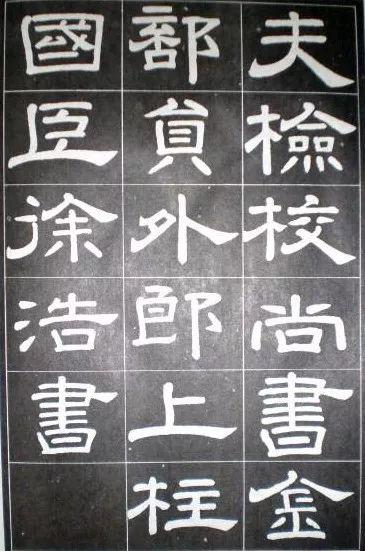 夫檢校尚書金
部員外郎上柱
國臣徐浩書